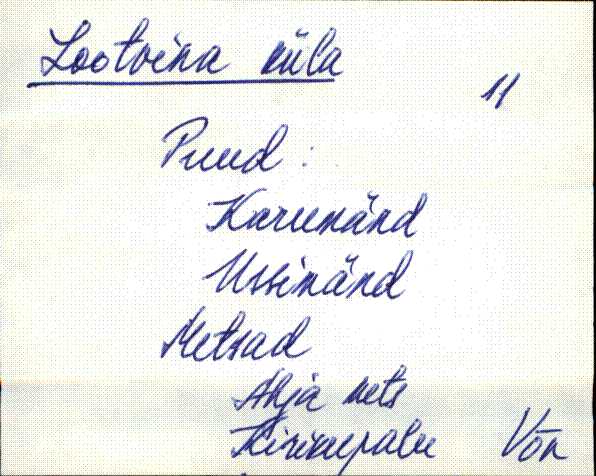 Lootvina küla
11
Puud:
Karumänd
Ussimänd
Metsad
Ahja mets
Kiirimepalu Võn